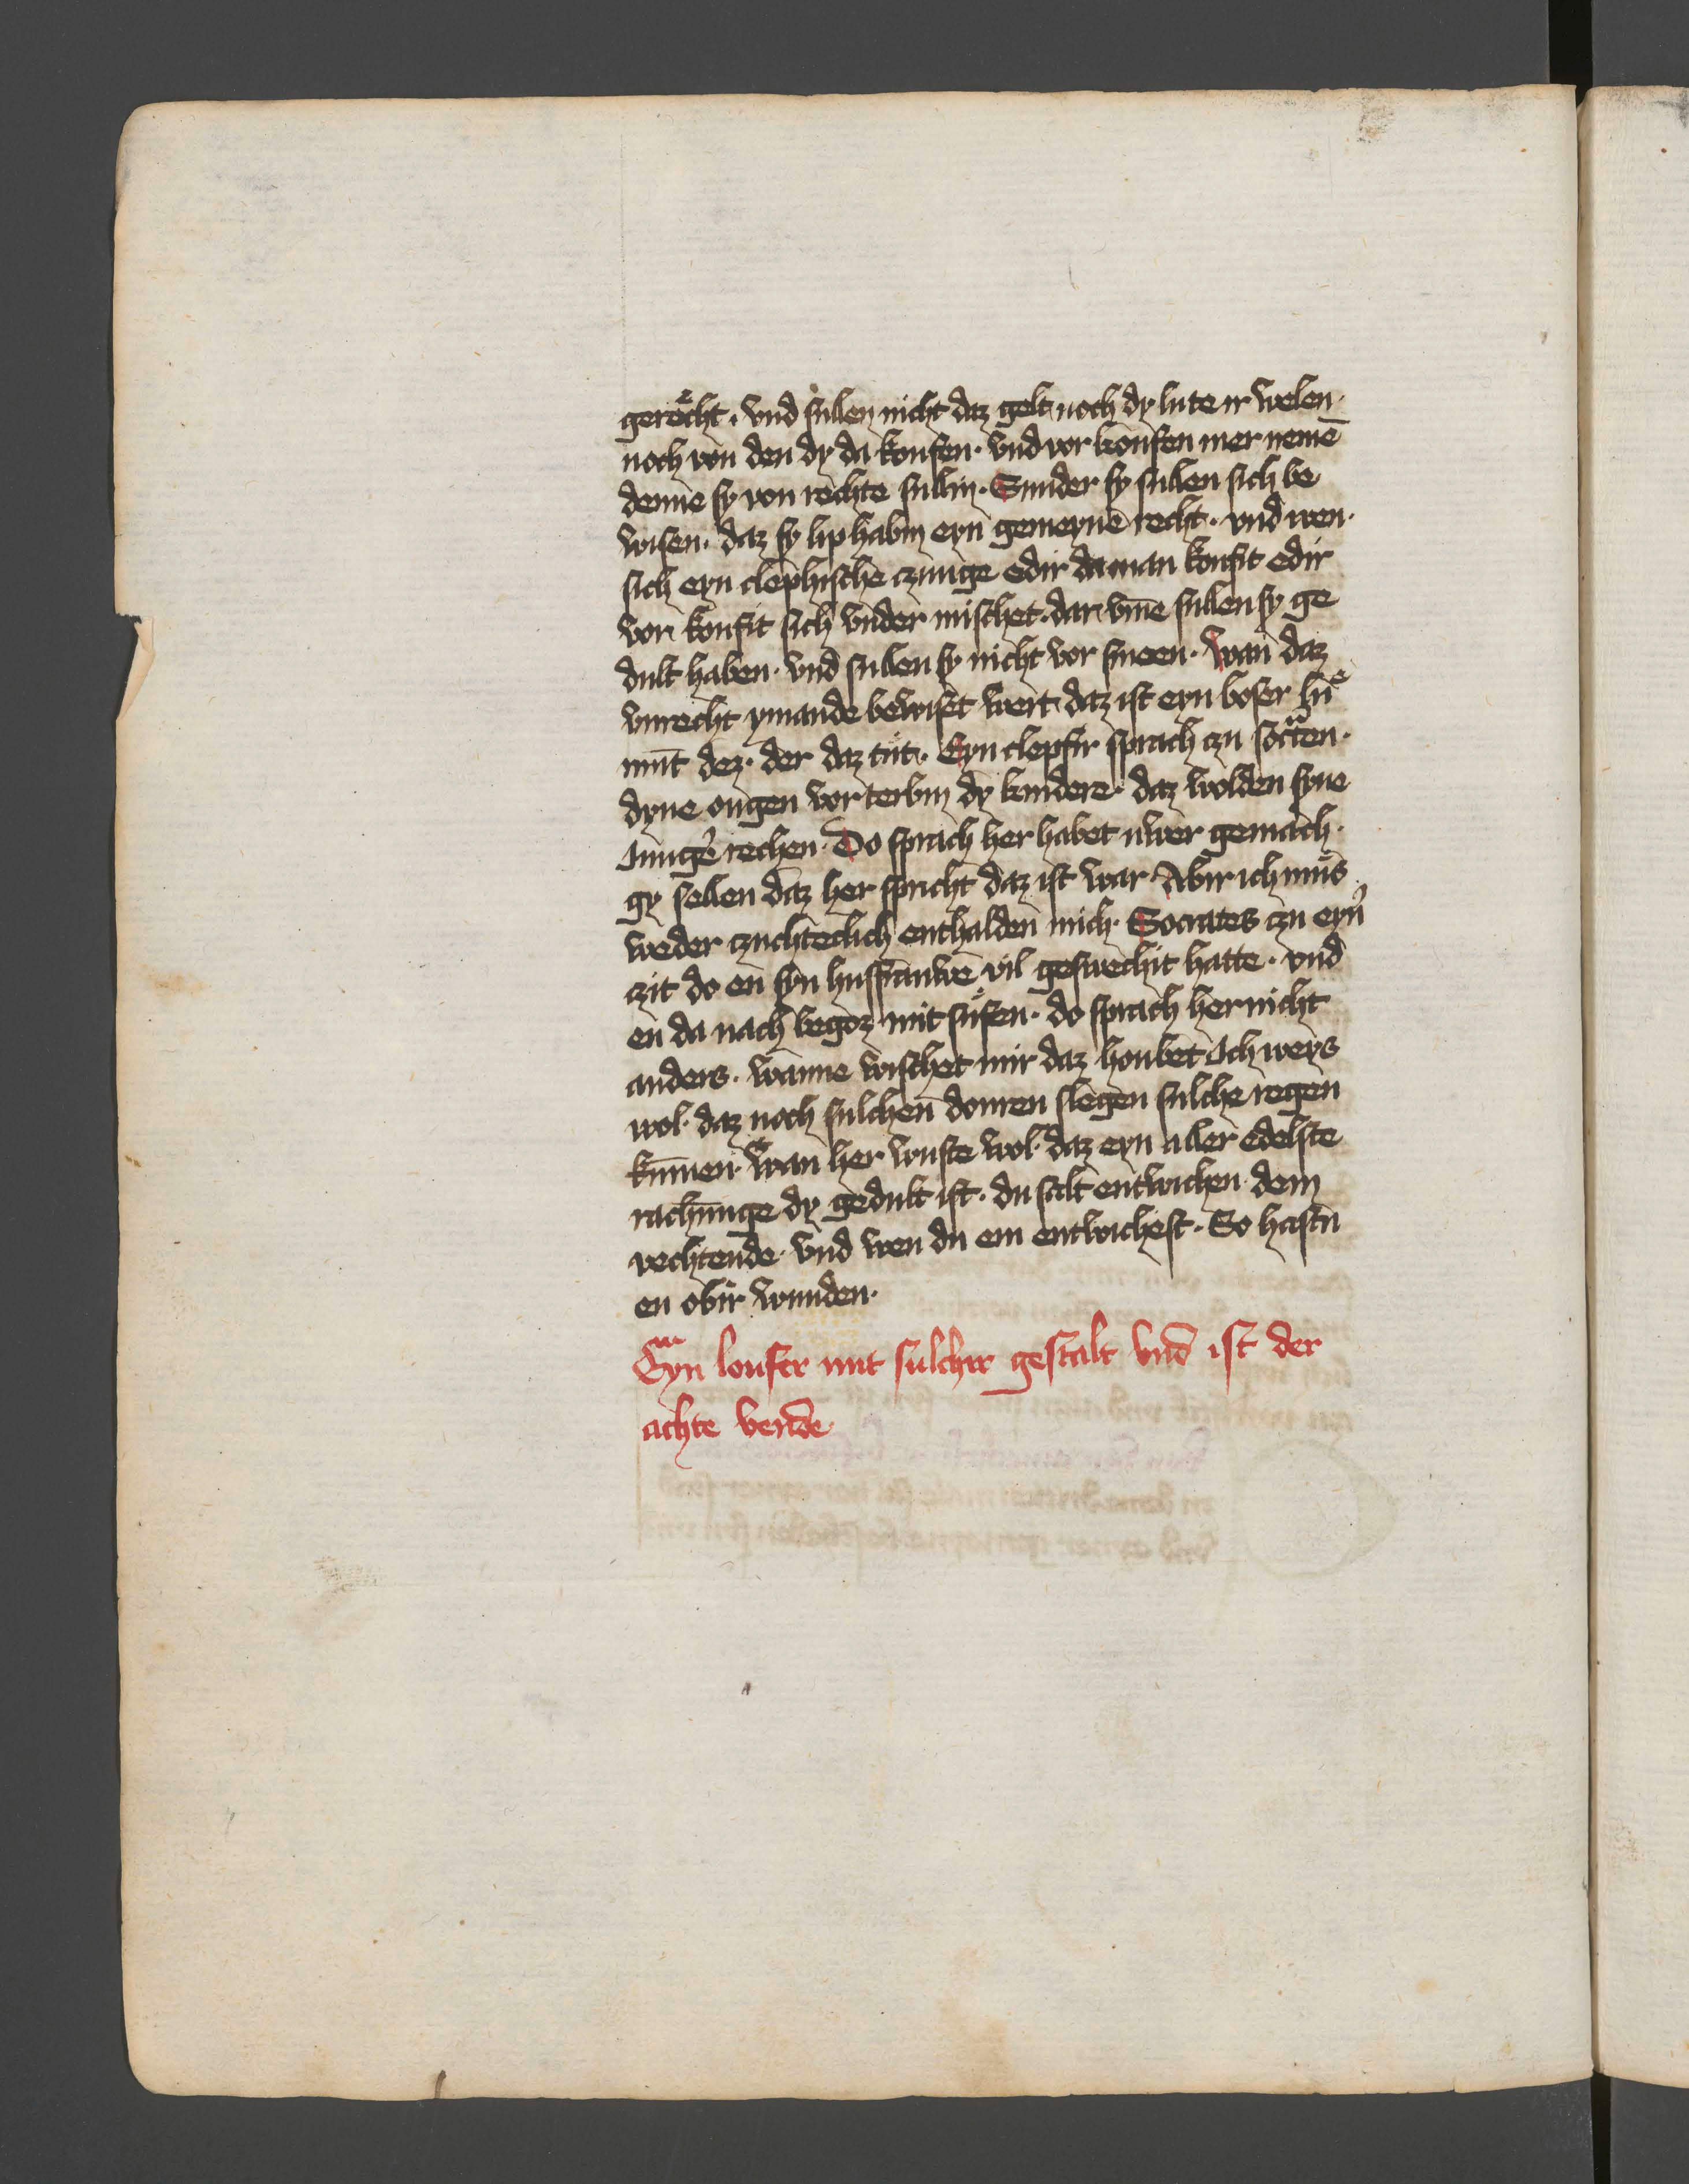 gerecht · vnd sullen nicht daz gelt noch dy lute ir welen ·
noch von den dy da koufen · vnd vor koufen mer nemē
denne sy von rechte sullin · Sunder sy sullen sich be
wisen · daz sy lip habin eyn gemeynē recht · vnd wen ·
sich eyn clephische czunge edir da man koufit edir
vor koufit sich vnder mischet · dar vm̄e sullen sy ge
dult haben · vnd sullen sy nicht vor smeen · wan daz
vnrecht ymande bewiset wert daz ist eyn boser
mut dez · der daz tut · Eyn clepfir sprach czu socten ·
dyne ougen vor terbin dy kindere · daz wolden syne
Jungē rechen · Do sprach her habet uwer gemach ·
gy sellen daz her spricht daz ist war Abir ich mus
weder czuchteclich enthalden mich · Socrates czu eyn̄
czit do en syn husfrauwe vil geswechit hatte · vnd
en da nach begoz mit sufen · do sprach her nicht
anders · wanne wischet mir daz houbet Ich weys
wol · daz noch sulchen donren slegen sulche regen
kūmen · wan her wuste wol · daz eyn aller edelste
rachunge dy gedult ist · du salt entwichen dem
vechtende · vnd wen du em entwichest · So hastu
en obir wunden ·
Eyn loufer mit sulchir gestalt vnd ist der
achte vende